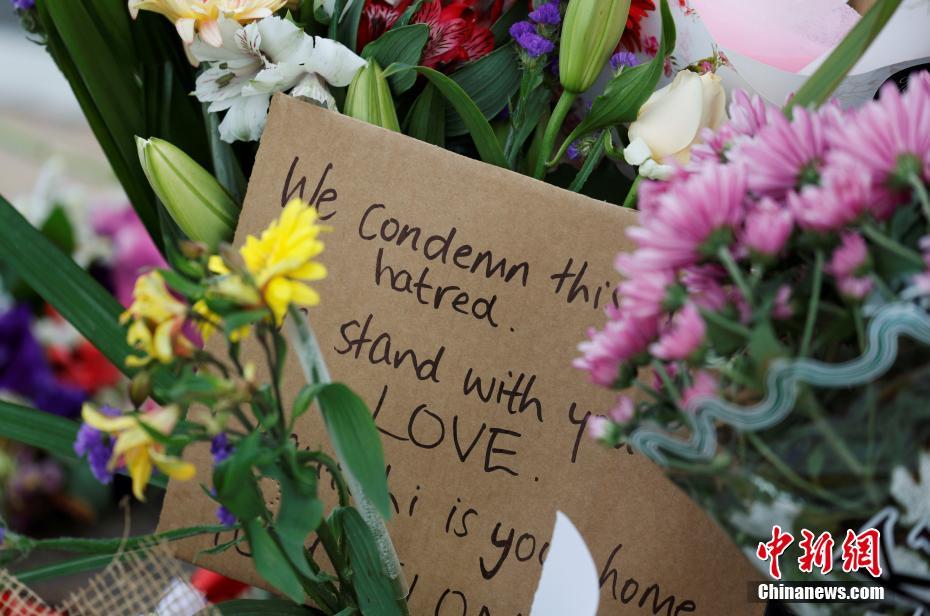 We Condemn this
hatred.
stand with
LOVE.
is your home
中新网
Chinanews.com